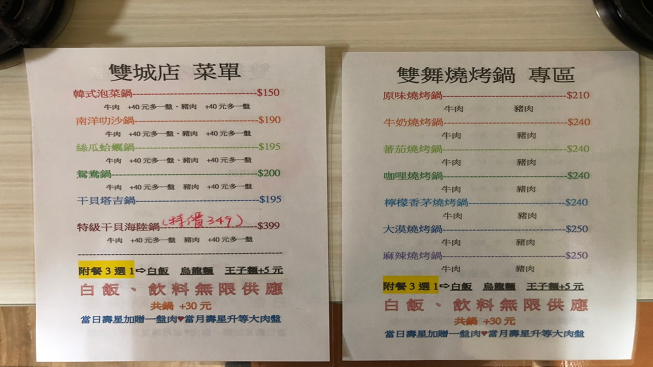 雙城店 菜單
韓式泡菜鍋-----$150
牛肉 +40元多一盤、豬肉 +40元多一盤
南洋叻沙鍋-----$190
牛肉 +40元多一盤、豬肉 +40元多一盤
絲瓜蛤蠣鍋-----$195
牛肉 +40元多一盤、豬肉 +40元多一盤
鴛鴦鍋-----$200
牛肉 +40元多一盤 豬肉 +40元多一盤
干貝塔吉鍋-----$195
特級干貝海陸鍋(特價349)-----$399
牛肉 +40元多一盤 豬肉 +40元多一盤
附餐3選1⇨白飯 烏龍麵 王子麵+5元
白飯、飲料無限供應
共鍋 +30元
當日壽星加贈一盤肉♥當月壽星升等大肉盤
雙舞燒烤鍋 專區
原味燒烤鍋-----$210
牛肉 豬肉
牛奶燒烤鍋-----$240
牛肉 豬肉
蕃茄燒烤鍋-----$240
牛肉 豬肉
咖哩燒烤鍋-----$240
牛肉 豬肉
檸檬香茅燒烤鍋-----$240
牛肉 豬肉
大漠燒烤鍋-----$250
牛肉 豬肉
麻辣燒烤鍋-----$250
牛肉 豬肉
附餐3選1⇨白飯 烏龍麵 王子麵+5元
白飯、飲料無限供應
共鍋 +30元
當日壽星加贈一盤肉♥當月壽星升等大肉盤